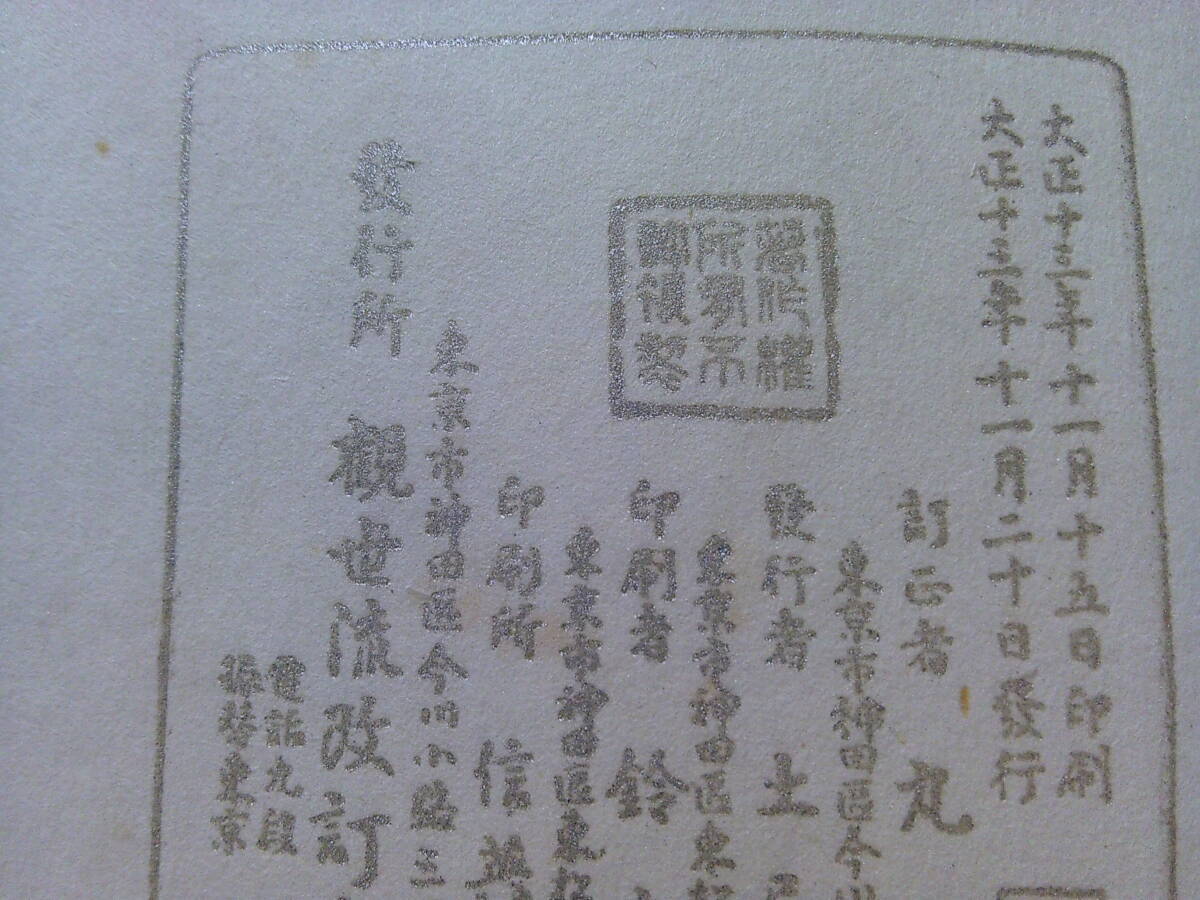 大正十二年十一月十五日印刷
大正十二年十一月二十日發行
訂正者 丸
東京市神田區今川
發行者 土
東京市神田區東
印刷者 鈴
東京市神田區東
印刷所 信
東京市神田區今川小路三
發行所 觀世流改訂
電話九段
振替東京
著作權
所有不
許複製